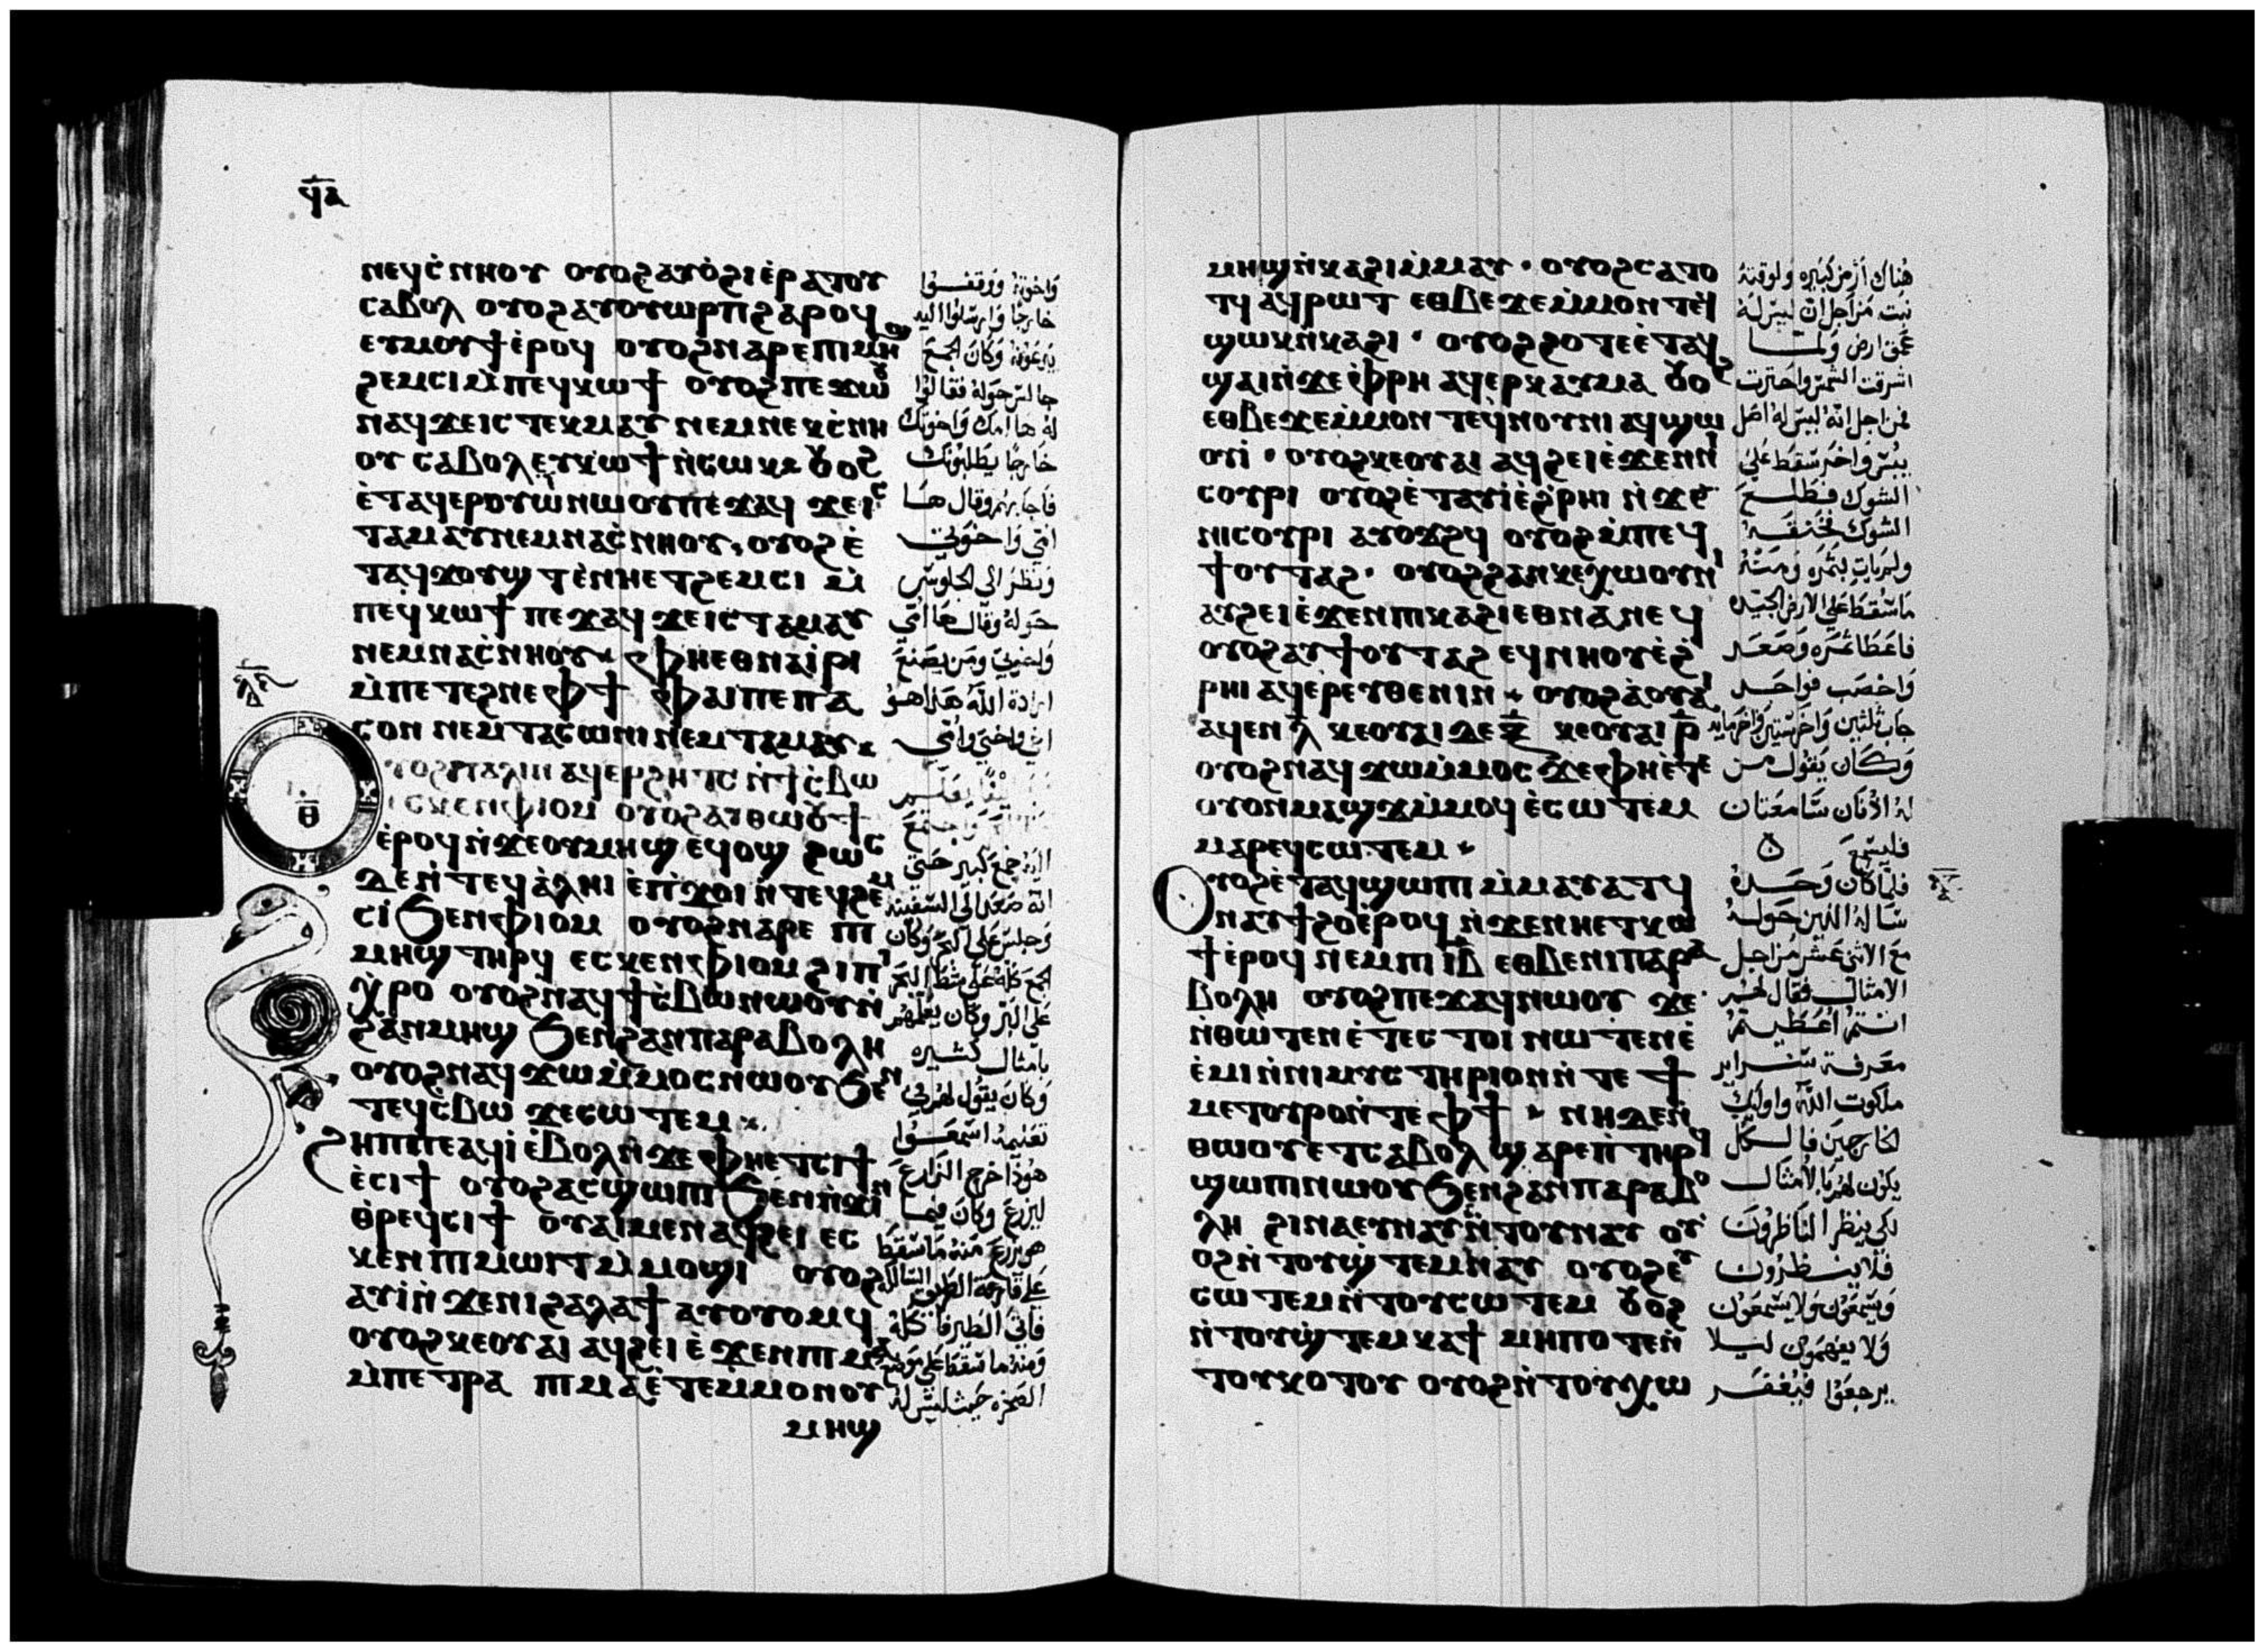 ϥⲁ
ⲛⲉϥⲥ̇ⲛⲏⲟⲩ ⲟⲩⲟϩ ⲁⲩⲟ̇ϩⲓ ⲉ̇ⲣⲁⲧⲟⲩ
ⲥⲁⲃⲟⲗ ⲟⲩⲟϩ ⲁⲩⲟⲩⲱⲣⲡ ϩⲁⲣⲟϥ
ⲉⲩⲙⲟⲩϯ ⲉ̇ⲣⲟϥ ⲟⲩⲟϩ ⲛⲁⲣⲉ ⲡⲓⲙⲏϣ
ϩⲉⲙⲥⲓ ⲙ̇ⲡⲉϥⲕⲱϯ ⲟⲩⲟϩ ⲡⲉϫⲱⲟⲩ
ⲛⲁϥ ϫⲉ ⲓⲥ ⲧⲉⲕⲙⲁⲩ ⲛⲉⲙ ⲛⲉⲕⲥ̇ⲛⲏ
ⲟⲩ ⲥⲁⲃⲟⲗ ⲉⲩⲕⲱϯ ⲛ̇ⲥⲱⲕ ⲟⲩⲟϩ
ⲉ̇ⲧⲁϥⲉⲣⲟⲩⲱ̇ ⲛⲱⲟⲩ ⲡⲉϫⲁϥ ϫⲉ ⲓⲥ
ⲧⲁⲙⲁⲩ ⲛⲉⲙ ⲛⲁⲥ̇ⲛⲏⲟⲩ, ⲟⲩⲟϩ ⲉ̇
ⲧⲁϥϫⲟⲩϣⲧ ⲉ̇ⲛⲏ ⲉⲧϩⲉⲙⲥⲓ ⲙ̇
ⲡⲉϥⲕⲱϯ ⲡⲉϫⲁϥ ϫⲉ ⲓⲥ ⲧⲁⲙⲁⲩ
ⲛⲉⲙ ⲛⲁⲥ̇ⲛⲏⲟⲩ ⲫⲏ ⲉⲑⲛⲁⲓ̇ⲣⲓ
ⲙ̇ⲡⲉⲧⲉϩⲛⲉ ⲫϯ ⲫⲁⲓ ⲡⲉ ⲡⲁ
ⲥⲟⲛ ⲛⲉⲙ ⲧⲁⲥⲱⲛⲓ ⲛⲉⲙ ⲧⲁⲙⲁⲩ
ⲟⲩⲟϩ ⲡⲁⲗⲓⲛ ⲁϥⲉⲣϩⲏⲧⲥ ⲛ̇ϯⲥ̇ⲃⲱ
ⲉⲥⲕⲉⲛ ⲫⲓⲟⲙ ⲟⲩⲟϩ ⲁⲩⲑⲱⲟⲩϯ
ⲉ̇ⲣⲟϥ ⲛ̇ϫⲉ ⲟⲩⲙⲏϣ ⲉϥⲟϣ ϩⲱⲥ
ϫⲉ ⲛ̇ⲧⲉϥⲁ̇ⲗⲏⲓ ⲉ̇ⲡ̇ϫⲟⲓ ⲛ̇ⲧⲉϥϩⲉⲙ
ⲥⲓ ϧⲉⲛ ⲫⲓⲟⲙ ⲟⲩⲟϩ ⲛⲁⲣⲉ ⲡⲓ
ⲙⲏϣ ⲧⲏⲣϥ ⲉⲥⲕⲉⲛ ⲫⲓⲟⲙ ϩⲓ ⲡⲓ
ⲭ̇ⲣⲟ ⲟⲩⲟϩ ⲛⲁϥϯⲥ̇ⲃⲱ ⲛⲱⲟⲩ ⲛ̇
ϩⲁⲛⲙⲏϣ ϧⲉⲛ ϩⲁⲛⲡⲁⲣⲁⲃⲟⲗⲏ
ⲟⲩⲟϩ ⲛⲁϥϫⲱ ⲙ̇ⲙⲟⲥ ⲛⲱⲟⲩ ϧⲉⲛ
ⲧⲉϥⲥ̇ⲃⲱ ϫⲉ ⲥⲱⲧⲉⲙ
ϩⲏⲡⲡⲉ ⲁϥⲓ̇ ⲉ̇ⲃⲟⲗ ⲛ̇ϫⲉ ⲫⲏ ⲉⲧⲥⲓϯ
ⲉ̇ⲥⲓϯ ⲟⲩⲟϩ ⲁⲥϣⲱⲡⲓ ϧⲉⲛ ⲡ̇ϫⲓⲛ
ⲑⲣⲉϥⲥⲓϯ ⲟⲩⲁⲓ ⲙⲉⲛ ⲁϥϩⲉⲓ ⲉⲥ
ⲕⲉⲛ ⲡⲓⲙⲱⲓⲧ ⲙ̇ⲙⲟϣⲓ ⲟⲩⲟϩ
ⲁⲩⲓ̇ ⲛ̇ϫⲉ ⲛⲓϩⲁⲗⲁϯ ⲁⲩⲟⲩⲟⲙϥ
ⲟⲩⲟϩ ⲕⲉⲟⲩⲁⲓ ⲁϥϩⲉⲓ ⲉ̇ϫⲉⲛ ⲡⲓⲙⲁ
ⲙ̇ⲡⲉⲧⲣⲁ ⲡⲓⲙⲁ ⲉ̇ⲧⲉ ⲙ̇ⲙⲟⲛ ⲟⲩ
ⲙⲏϣ
واخوته ووقفوا
خارجا وارسلوا اليه
يدعونه وكان الجمع
جالس حوله فقالوا
له ها امك واخوتك
خارجا يطلبونك
فاجابهم وقال ها
امي واخوتي
ونظر الى الجلوس
حوله وقال ها امي
واخوتي ومن يصنع
ارادة الله هذا هو
اخي واختي وامي
اليه جمع كبير حتى
انه صعد الى السفينه
وجلس على البحر وكان
الجمع كله على شط البحر
على البر وكان يعلمهم
بامثال كثيره
وكان يقول لهم في
تعليمه اسمعوا
هوذا اخرج الزارع
ليزرع وكان فيما
هو يزرع منه ما سقط
على قارعة الطريق السالك
فاتى الطير فاكله
ومنه ما سقط على موضع
الصخره حيث ليس له
ⲙⲏϣ ⲛ̇ⲕⲁϩⲓ ⲙ̇ⲙⲁⲩ · ⲟⲩⲟϩ ⲥⲁⲧⲟ
ⲧϥ ⲁϥⲣⲱⲧ ⲉⲑⲃⲉ ϫⲉ ⲙ̇ⲙⲟⲛ ⲧⲉϥ
ϣⲱⲕ ⲛ̇ⲕⲁϩⲓ · ⲟⲩⲟϩ ϩⲟⲧⲉ ⲉ̇ⲧⲁϥ
ϣⲁⲓ ⲛ̇ϫⲉ ⲫ̇ⲣⲏ ⲁϥⲉⲣⲕⲁⲩⲙⲁ ⲟⲩⲟϩ
ⲉⲑⲃⲉ ϫⲉ ⲙ̇ⲙⲟⲛ ⲧⲉϥⲛⲟⲩⲛⲓ ⲁϥϣⲱ
ⲟⲩⲓ̇ · ⲟⲩⲟϩ ⲕⲉⲟⲩⲁⲓ ⲁϥϩⲉⲓ ⲉ̇ϫⲉⲛ ⲛⲓ
ⲥⲟⲩⲣⲓ ⲟⲩⲟϩ ⲉ̇ⲧⲁⲩⲓ̇ ⲉ̇ϩ̇ⲣⲏⲓ ⲛ̇ϫⲉ
ⲛⲓⲥⲟⲩⲣⲓ ⲁⲩⲟϫϩϥ ⲟⲩⲟϩ ⲙ̇ⲡⲉϥ
ϯⲟⲩⲧⲁϩ · ⲟⲩⲟϩ ϩⲁⲛⲕⲉⲭⲱⲟⲩⲛⲓ
ⲁⲩϩⲉⲓ ⲉ̇ϫⲉⲛ ⲡⲓⲕⲁϩⲓ ⲉⲑⲛⲁⲛⲉϥ
ⲟⲩⲟϩ ⲁⲩϯⲟⲩⲧⲁϩ ⲉϥⲛⲏⲟⲩ ⲉ̇ϩ̇
ⲣⲏⲓ ⲁϥⲉⲣⲉⲩⲑⲉⲛⲓⲛ ⲟⲩⲟϩ ⲁ̇ⲟⲩⲁⲓ
ⲁϥⲉⲛ ⲗ̅ ⲕⲉⲟⲩⲁⲓ ⲇⲉ ⲝ̅ ⲕⲉⲟⲩⲁⲓ ⲣ̅
ⲟⲩⲟϩ ⲛⲁϥϫⲱ ⲙ̇ⲙⲟⲥ ϫⲉ ⲫⲏ ⲉ̇ⲧⲉ
ⲟⲩⲟⲛ ⲙⲁϣϫ ⲙ̇ⲙⲟϥ ⲉ̇ⲥⲱⲧⲉⲙ
ⲙⲁⲣⲉϥⲥⲱⲧⲉⲙ
ⲟⲩⲟϩ ⲉ̇ⲧⲁϥϣⲱⲡⲓ ⲙ̇ⲙⲁⲩⲁⲧϥ
ⲛⲁⲩϯϩⲟ ⲉ̇ⲣⲟϥ ⲛ̇ϫⲉ ⲛⲏ ⲉⲧⲕⲱ
ϯ ⲉ̇ⲣⲟϥ ⲛⲉⲙ ⲡⲓ ⲓ̅ⲃ̅ ⲉⲑⲃⲉ ⲛⲓⲡⲁⲣⲁ
ⲃⲟⲗⲏ ⲟⲩⲟϩ ⲡⲉϫⲁϥ ⲛⲱⲟⲩ ϫⲉ
ⲛ̇ⲑⲱⲧⲉⲛ ⲉ̇ⲧⲉⲥⲧⲟⲓ ⲛⲱⲧⲉⲛ ⲉ̇
ⲉ̇ⲙⲓ ⲛ̇ⲛⲓⲙⲩⲥⲧⲏⲣⲓⲟⲛ ⲛ̇ⲧⲉ ϯ
ⲙⲉⲧⲟⲩⲣⲟ ⲛ̇ⲧⲉ ⲫϯ ⲛⲏ ⲇⲉ ⲛ̇
ⲑⲱⲟⲩ ⲉⲧⲥⲁⲃⲟⲗ ϣⲁⲣⲉ ⲡ̇ⲧⲏⲣϥ
ϣⲱⲡⲓ ⲛⲱⲟⲩ ϧⲉⲛ ϩⲁⲛⲡⲁⲣⲁⲃⲟ
ⲗⲏ ϩⲓⲛⲁ ⲉⲩⲛⲁⲩ ⲛ̇ⲧⲟⲩⲛⲁⲩ ⲟⲩ
ⲟϩ ⲛ̇ⲧⲟⲩϣ̇ⲧⲉⲙⲛⲁⲩ ⲟⲩⲟϩ ⲉⲩ
ⲥⲱⲧⲉⲙ ⲛ̇ⲧⲟⲩⲥⲱⲧⲉⲙ ⲟⲩⲟϩ
ⲛ̇ⲧⲟⲩϣ̇ⲧⲉⲙⲕⲁϯ ⲙⲏⲡⲟⲧⲉ ⲛ̇
ⲧⲟⲩⲕⲟⲧⲟⲩ ⲟⲩⲟϩ ⲛ̇ⲧⲟⲩⲭⲱ
هناك ارض كبيره ولوقته
نبت من اجل ان ليس له
عمق ارض ولما
اشرقت الشمس واحترت
فمن اجل انه ليس له اصل
يبس واخر سقط على
الشوك فطلع
الشوك فخنقه
ولم يات بثمره ومنه
ما سقط على الارض الجيده
فاعطا ثمره وصعد
واخصب فواحد
جاب ثلثين واخر ستين واخر مايه
وكان يقول من
له اذنان سامعتان
فليسمع
فلما كان وحده
ساله الذين حوله
مع الاثنى عشر من اجل
الامثال فقال لهم
انتم اعطيتم
معرفة سراير
ملكوت الله واوليك
الخارجين فالكل
يكون لهم بالامثال
لكي ينظر الناظرون
فلا ينظرون
ويسمعون ولا يسمعون
ولا يفهمون ليلا
يرجعوا فيغفر